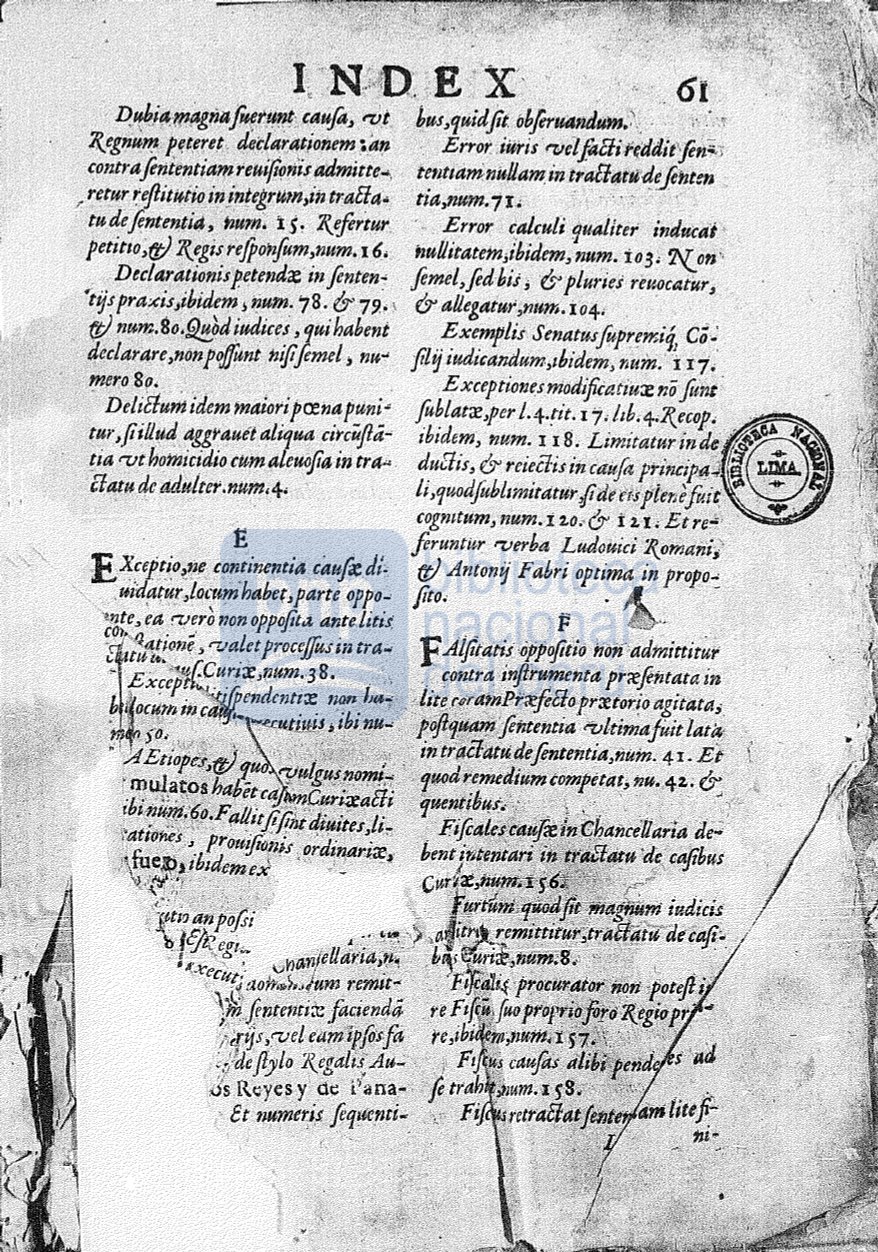 INDEX 61
Dubia magna fuerunt causa, vt
Regnum peteret declarationem: an
contra sententiam reuisionis admitte-
retur restitutio in integrum, in tracta-
tu de sententia, num. 15. Refertur
petitio, & Regis responsum, num. 16.
Declarationis petendæ in senten-
tijs praxis, ibidem, num. 78. & 79.
& num. 80. Quòd iudices, qui habent
declarare, non possunt nisi semel, nu-
mero 80.
Delictum idem maiori pœna puni-
tur, si illud aggrauet aliqua circũstã-
tia vt homicidio cum aleuosia in tra-
ctatu de adulter. num. 4.
E
EXceptio, ne continentia causæ di-
uidatur, locum habet, parte oppo-
nte, ea verò non opposita ante litis
stationẽ, valet processus in tra-
ctatu Curiæ, num. 38.
Excepti litispendentiæ non ha-
locum in ecutiuis, ibi nu-
50.
AEtiopes, & quos vulgus nomi-
mulatos habẽt casum Curiæ acti
ibi num. 60. Fallit si sint diuites, li-
ationes, prouisionis ordinariæ,
fuero, ibidem ex
an possi
Est Regi
executi
Chancellaria, n.
um remit-
m sententiæ faciendã
rijs, vel eam ipsos fa
de stylo Regalis Au-
os Reyes y de Pana-
Et numeris sequenti-
bus, quid sit obseruandum.
Error iuris vel facti reddit sen-
tentiam nullam in tractatu de senten
tia, num. 71.
Error calculi qualiter inducat
nullitatem, ibidem, num. 103. Non
semel, sed bis, & pluries reuocatur,
& allegatur, num. 104.
Exemplis Senatus supremiq́; Cõ-
silij iudicandum, ibidem, num. 117.
Exceptiones modificatiuæ nõ sunt
sublatæ, per l. 4. tit. 17. lib. 4. Recop.
ibidem, num. 118. Limitatur in de
ductis, & reiectis in causa principa-
li, quod sublimitatur, si de eis plenè fuit
cognitum, num. 120. & 121. Et re-
feruntur verba Ludouici Romani,
& Antonij Fabri optima in propo-
sito.
F
FAlsitatis oppositio non admittitur
contra instrumenta præsentata in
lite coram Præfecto prætorio agitata,
postquam sententia vltima fuit lata
in tractatu de sententia, num. 41. Et
quod remedium competat, nu. 42. &
quentibus.
Fiscales causæ in Chancellaria de-
bent intentari in tractatu de casibus
Curiæ, num. 156.
Furtum quod sit magnum iudicis
arbitrio remittitur, tractatu de casi-
bus Curiæ, num. 8.
Fiscalis procurator non potest ir
re Fiscũ suo proprio foro Regio pri-
re, ibidem, num. 157.
Fiscus causas alibi pendentes ad
se trahit, num. 158.
Fiscus retractat sententiam lite fi-
I ni-
BIBLIOTECA NACIONAL
LIMA
bnp
biblioteca
nacional
del Perú